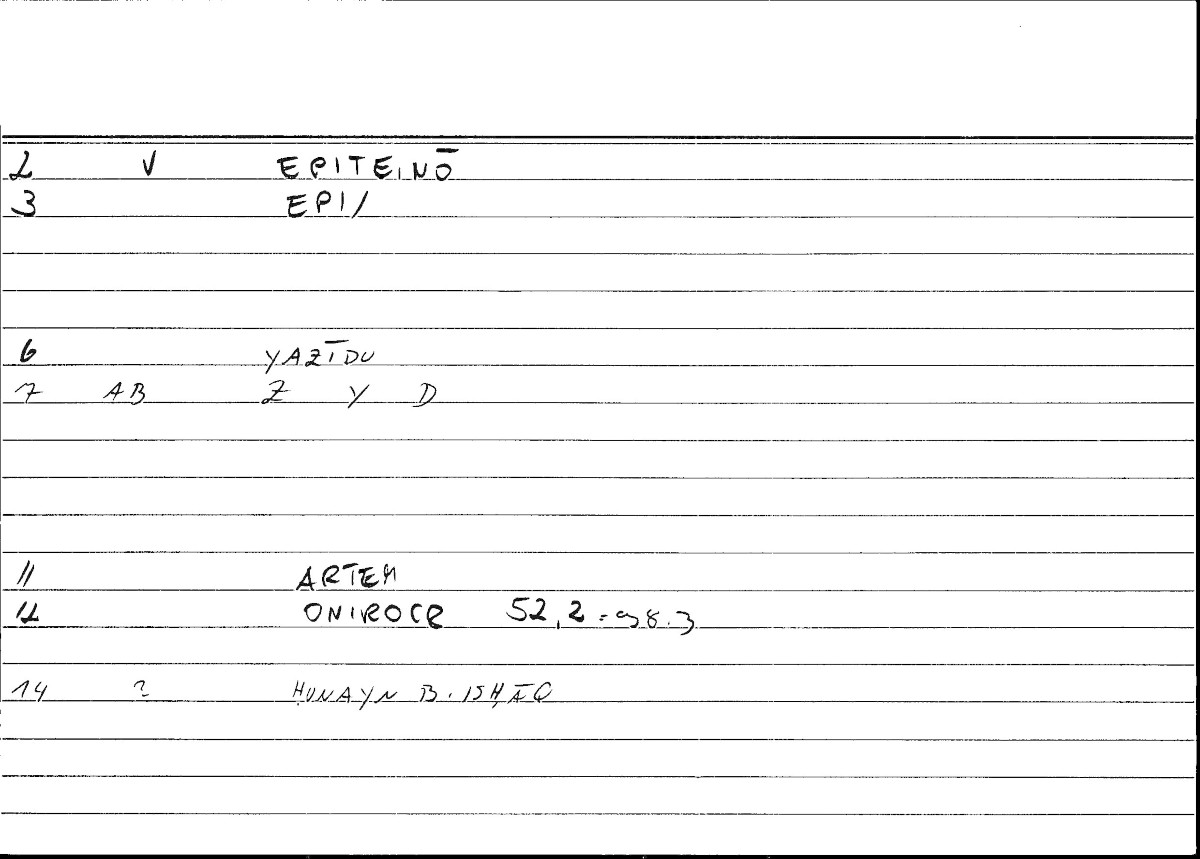 2 V EPITEINŌ
3 EPI/
6 YAZĪDU
7 AB Z Y D
11 ARTEM
12 ONIROCR 52,2 = 98.3
14 ? ḤUNAYN B. ISḤĀQ